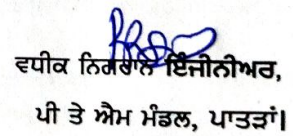 ਵਧੀਕ ਨਿਗਰਾਨ ਇੰਜੀਨੀਅਰ,
ਪੀ ਤੇ ਐਮ ਮੰਡਲ, ਪਾਤੜਾਂ।